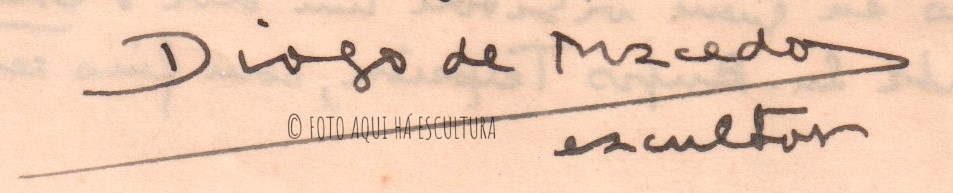 Diogo de Macedo
© FOTO AQUI HÁ ESCULTURA
escultor